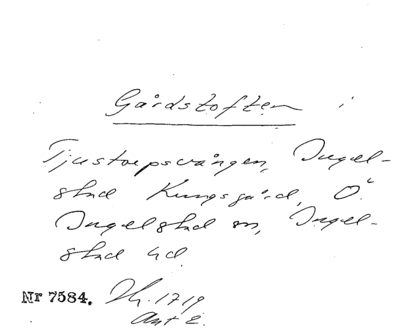 Gårdstoften i
Tjustorpsvången, Ingel-
stad Kungsgård, Ö
Ingelstad sn, Ingel-
stad hd
Nr 7584. Jh. 1719
Akt 2.